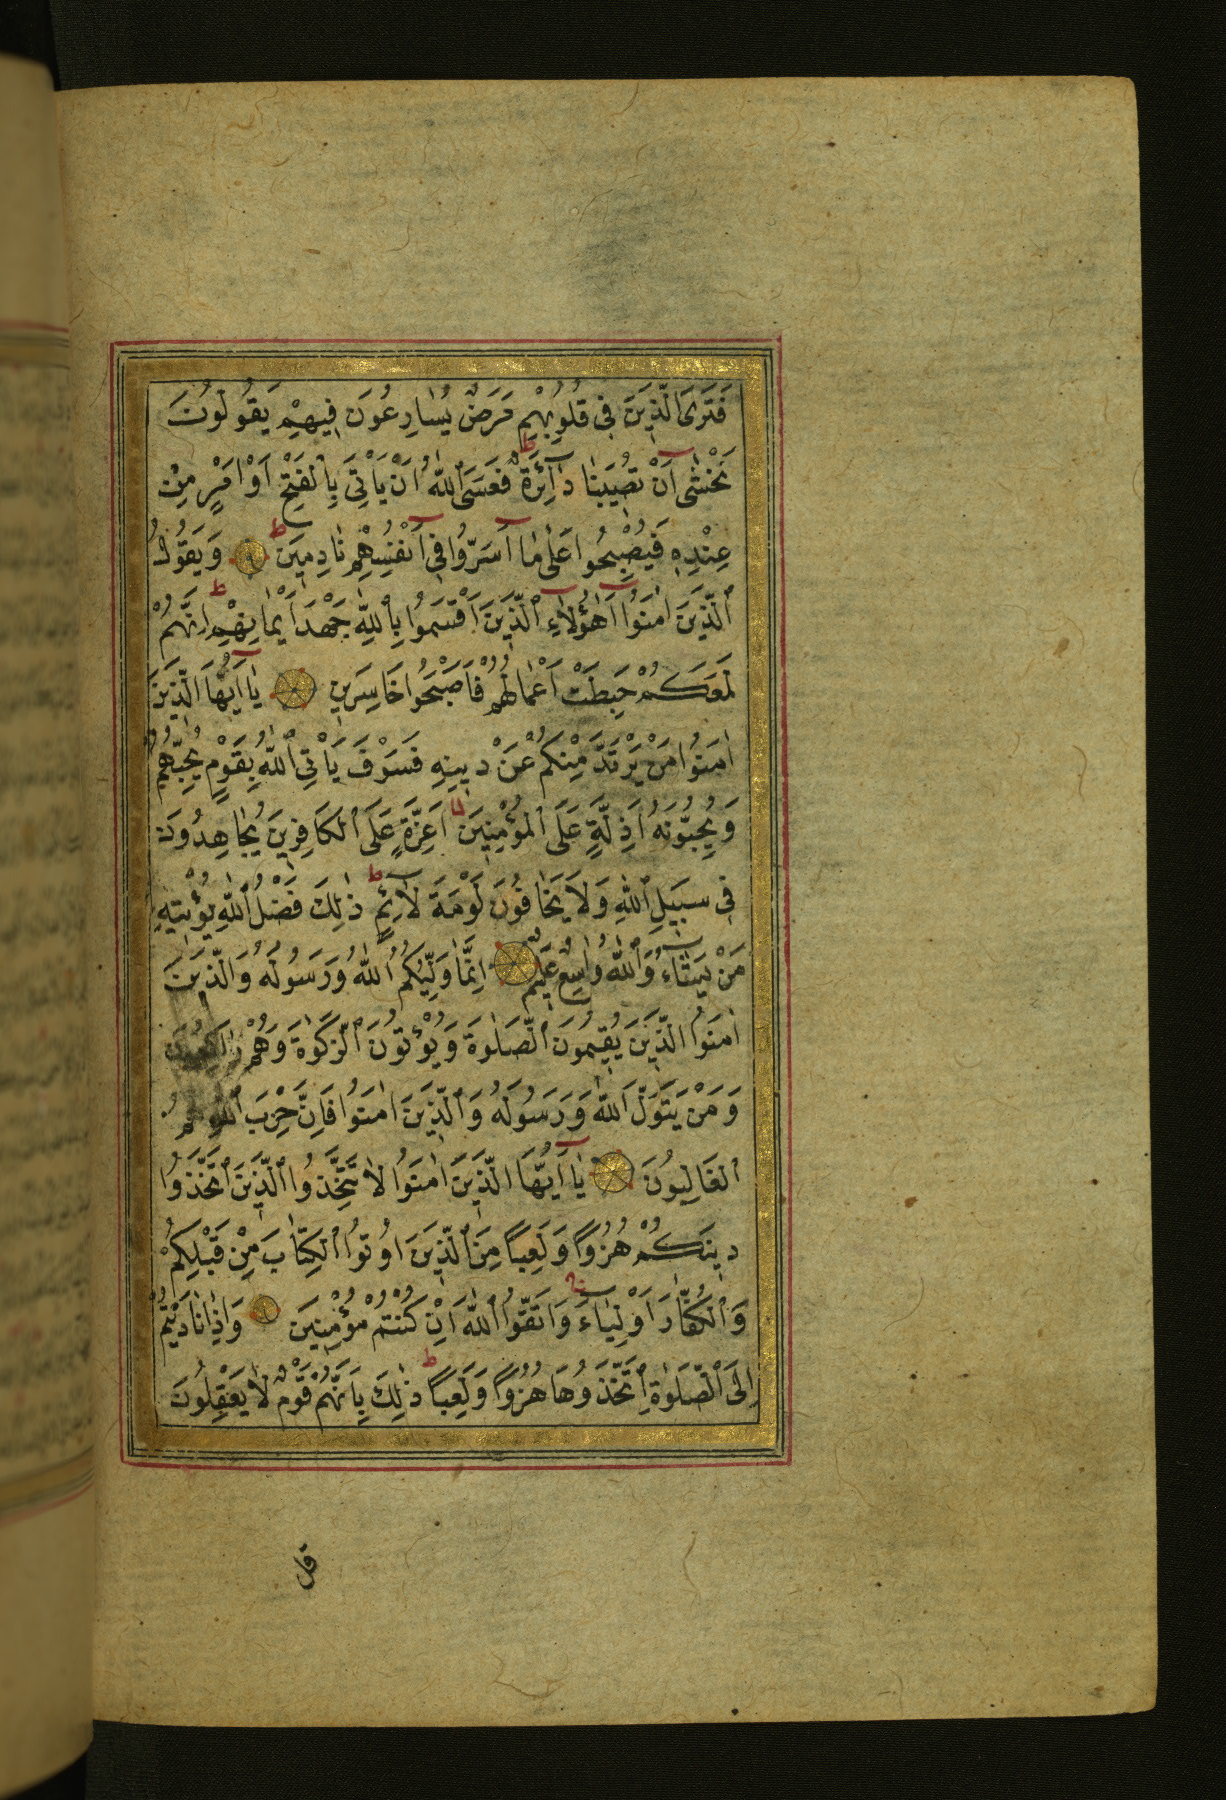 فَتَرَى الَّذِينَ فِي قُلُوبِهِمْ مَرَضٌ يُسَارِعُونَ فِيهِمْ يَقُولُونَ
نَخْشٰى اَنْ تُصِيبَنَا دَآئِرَةٌ ط فَعَسَى اللّٰهُ اَنْ يَاْتِيَ بِالْفَتْحِ اَوْ اَمْرٍ مِنْ
عِنْدِهِ فَيُصْبِحُوا عَلٰى مَا اَسَرُّوا فِي اَنْفُسِهِمْ نَادِمِينَ ط وَيَقُولُ
الَّذِينَ اٰمَنُوا اَهٰؤُلَاءِ الَّذِينَ اَقْسَمُوا بِاللّٰهِ جَهْدَ اَيْمَانِهِمْ ط اِنَّهُمْ
لَمَعَكُمْ حَبِطَتْ اَعْمَالُهُمْ فَاَصْبَحُوا خَاسِرِينَ يَا اَيُّهَا الَّذِينَ
اٰمَنُوا مَنْ يَرْتَدَّ مِنْكُمْ عَنْ دِينِهِ فَسَوْفَ يَاْتِي اللّٰهُ بِقَوْمٍ يُحِبُّهُمْ
وَيُحِبُّونَهُ اَذِلَّةٍ عَلَى الْمُؤْمِنِينَ اَعِزَّةٍ عَلَى الْكَافِرِينَ يُجَاهِدُونَ
فِي سَبِيلِ اللّٰهِ وَلَا يَخَافُونَ لَوْمَةَ لَآئِمٍ ط ذٰلِكَ فَضْلُ اللّٰهِ يُؤْتِيهِ
مَنْ يَشَاءُ وَاللّٰهُ وَاسِعٌ عَلِيمٌ اِنَّمَا وَلِيُّكُمُ اللّٰهُ وَرَسُولُهُ وَالَّذِينَ
اٰمَنُوا الَّذِينَ يُقِيمُونَ الصَّلٰوةَ وَيُؤْتُونَ الزَّكٰوةَ وَهُمْ رَاكِعُونَ
وَمَنْ يَتَوَلَّ اللّٰهَ وَرَسُولَهُ وَالَّذِينَ اٰمَنُوا فَاِنَّ حِزْبَ اللّٰهِ هُمُ
الْغَالِبُونَ يَا اَيُّهَا الَّذِينَ اٰمَنُوا لَا تَتَّخِذُوا الَّذِينَ اتَّخَذُوا
دِينَكُمْ هُزُوًا وَلَعِبًا مِنَ الَّذِينَ اُوتُوا الْكِتَابَ مِنْ قَبْلِكُمْ
وَالْكُفَّارَ اَوْلِيَاءَ ج وَاتَّقُوا اللّٰهَ اِنْ كُنْتُمْ مُؤْمِنِينَ وَاِذَا نَادَيْتُمْ
اِلَى الصَّلٰوةِ اتَّخَذُوهَا هُزُوًا وَلَعِبًا ط ذٰلِكَ بِاَنَّهُمْ قَوْمٌ لَا يَعْقِلُونَ
قل